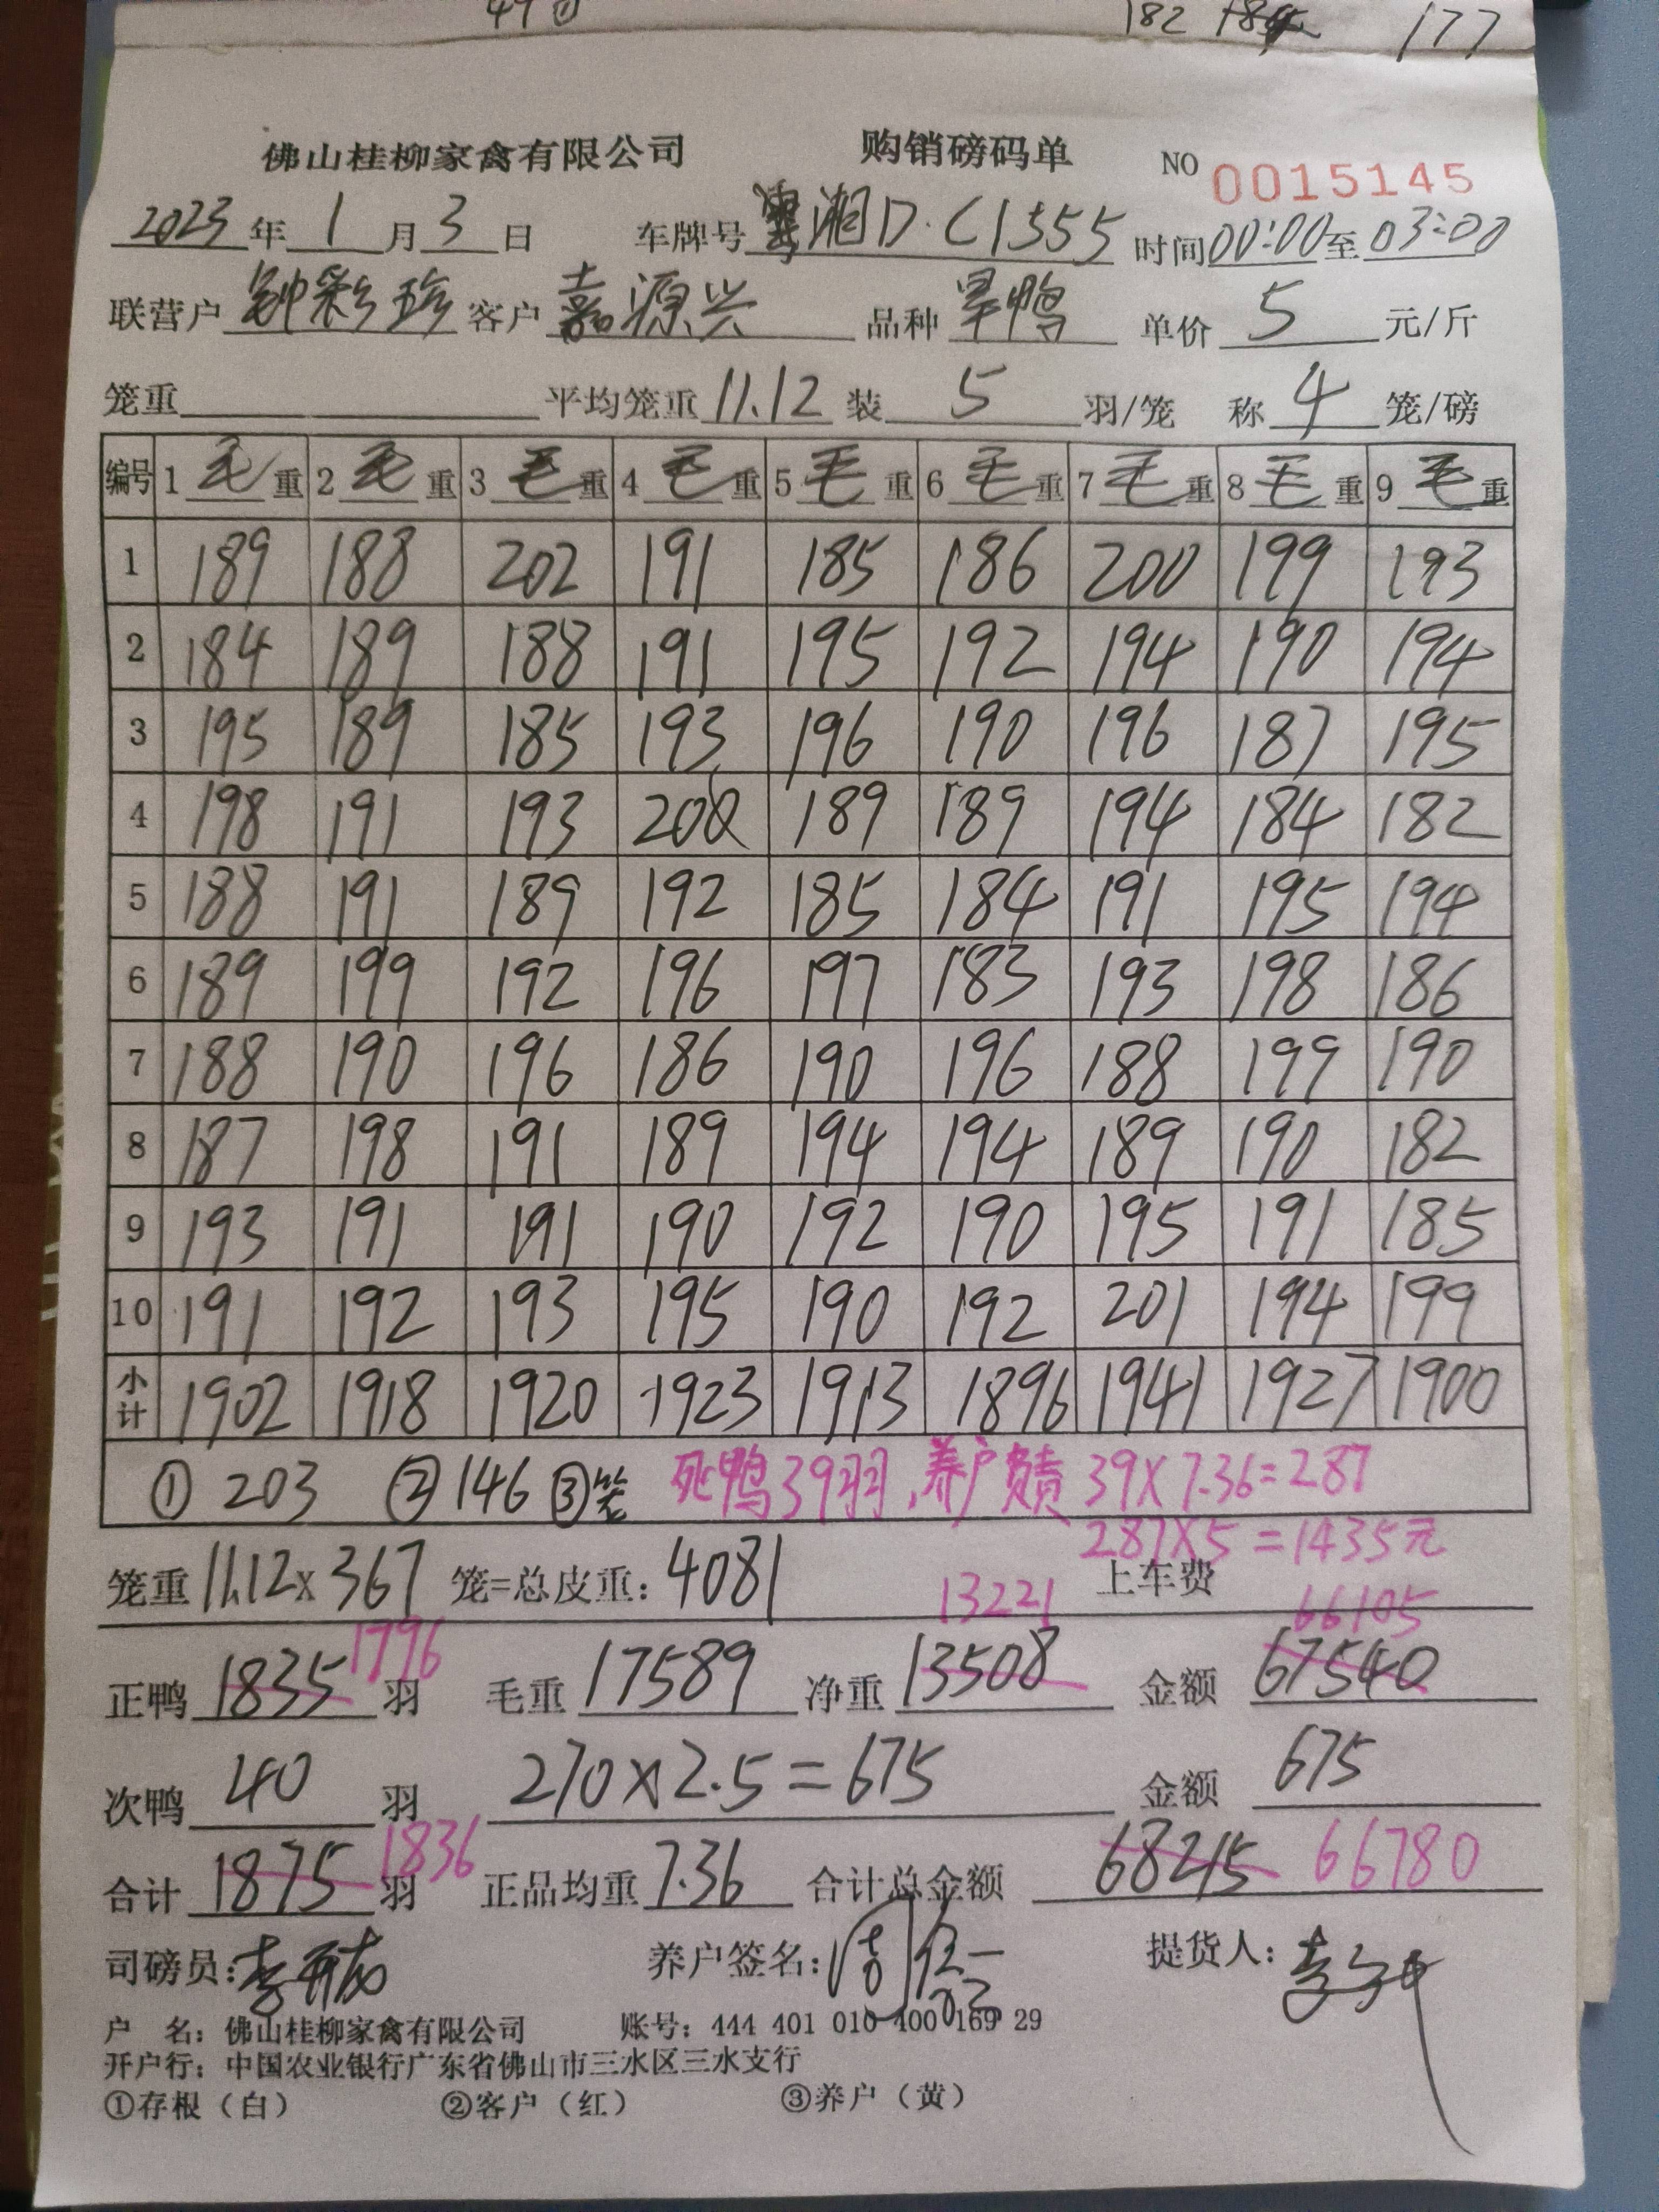 182 177
佛山桂柳家禽有限公司 购销磅码单 NO 0015145
2023年1月3日 车牌号 湘D·C1355 时间00:00至03:00
联营户 钟彩珍 客户 嘉源兴 品种 旱鸭 单价 5 元/斤
笼重 平均笼重 11.12 装 5 羽/笼 称 4 笼/磅
编号 1 毛重 2 毛重 3 毛重 4 毛重 5 毛重 6 毛重 7 毛重 8 毛重 9 毛重
1 189 188 202 191 185 186 200 199 193
2 184 189 188 191 195 192 194 190 194
3 195 189 185 193 196 190 196 187 195
4 198 191 193 200 189 189 194 184 182
5 188 191 189 192 185 184 191 195 194
6 189 199 192 196 197 183 193 198 186
7 188 190 196 186 190 196 188 199 190
8 187 198 191 189 194 194 189 190 182
9 193 191 191 190 192 190 195 191 185
10 191 192 193 195 190 192 201 194 199
小计 1902 1918 1920 1923 1913 1896 1941 1927 1900
① 203 ② 146 ③笼 死鸭39羽,养户责 39×7.36=287
287×5=1435元
笼重 11.12×367 笼=总皮重: 4081 上车费
1796 13221 66105
正鸭 1835 羽 毛重 17589 净重 13508 金额 67540
次鸭 40 羽 270×2.5=675 金额 675
合计 1875 1836 羽 正品均重 7.36 合计总金额 68215 66780
司磅员: 养户签名: 提货人:
户 名: 佛山桂柳家禽有限公司 账号: 444 401 010 400 169 29
开户行: 中国农业银行广东省佛山市三水区三水支行
①存根(白) ②客户(红) ③养户(黄)